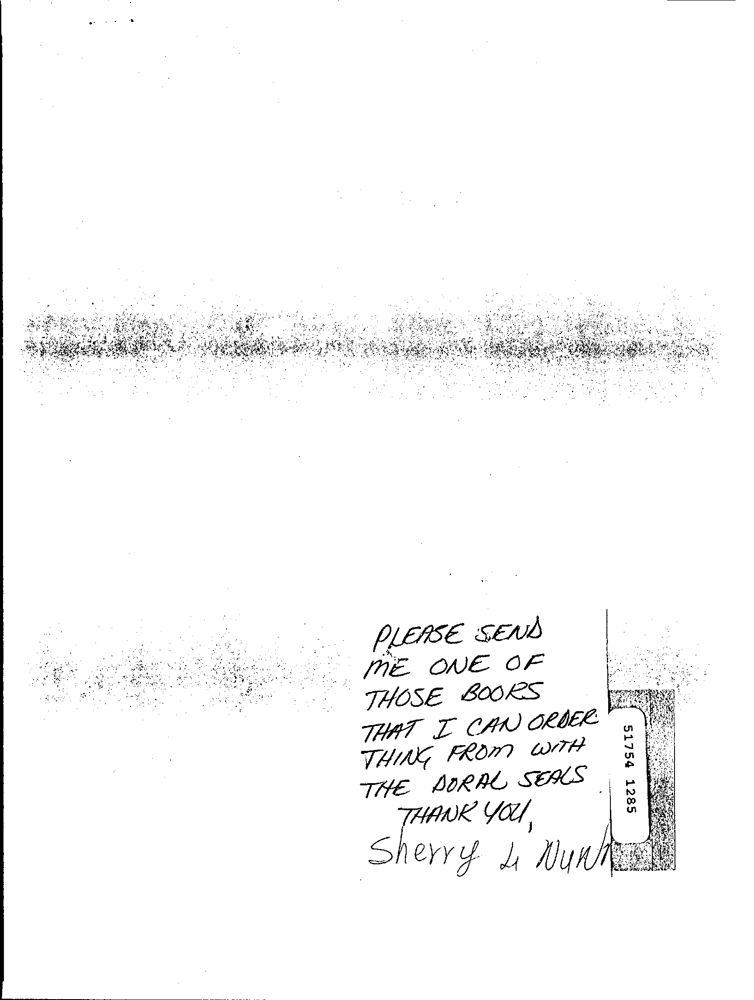 PLEASE SEND
ME ONE OF
THOSE BOOKS
THAT I CAN ORDER
THING FROM WITH
THE DORAL SEALS
THANK YOU,
Sherry L
51754 1285